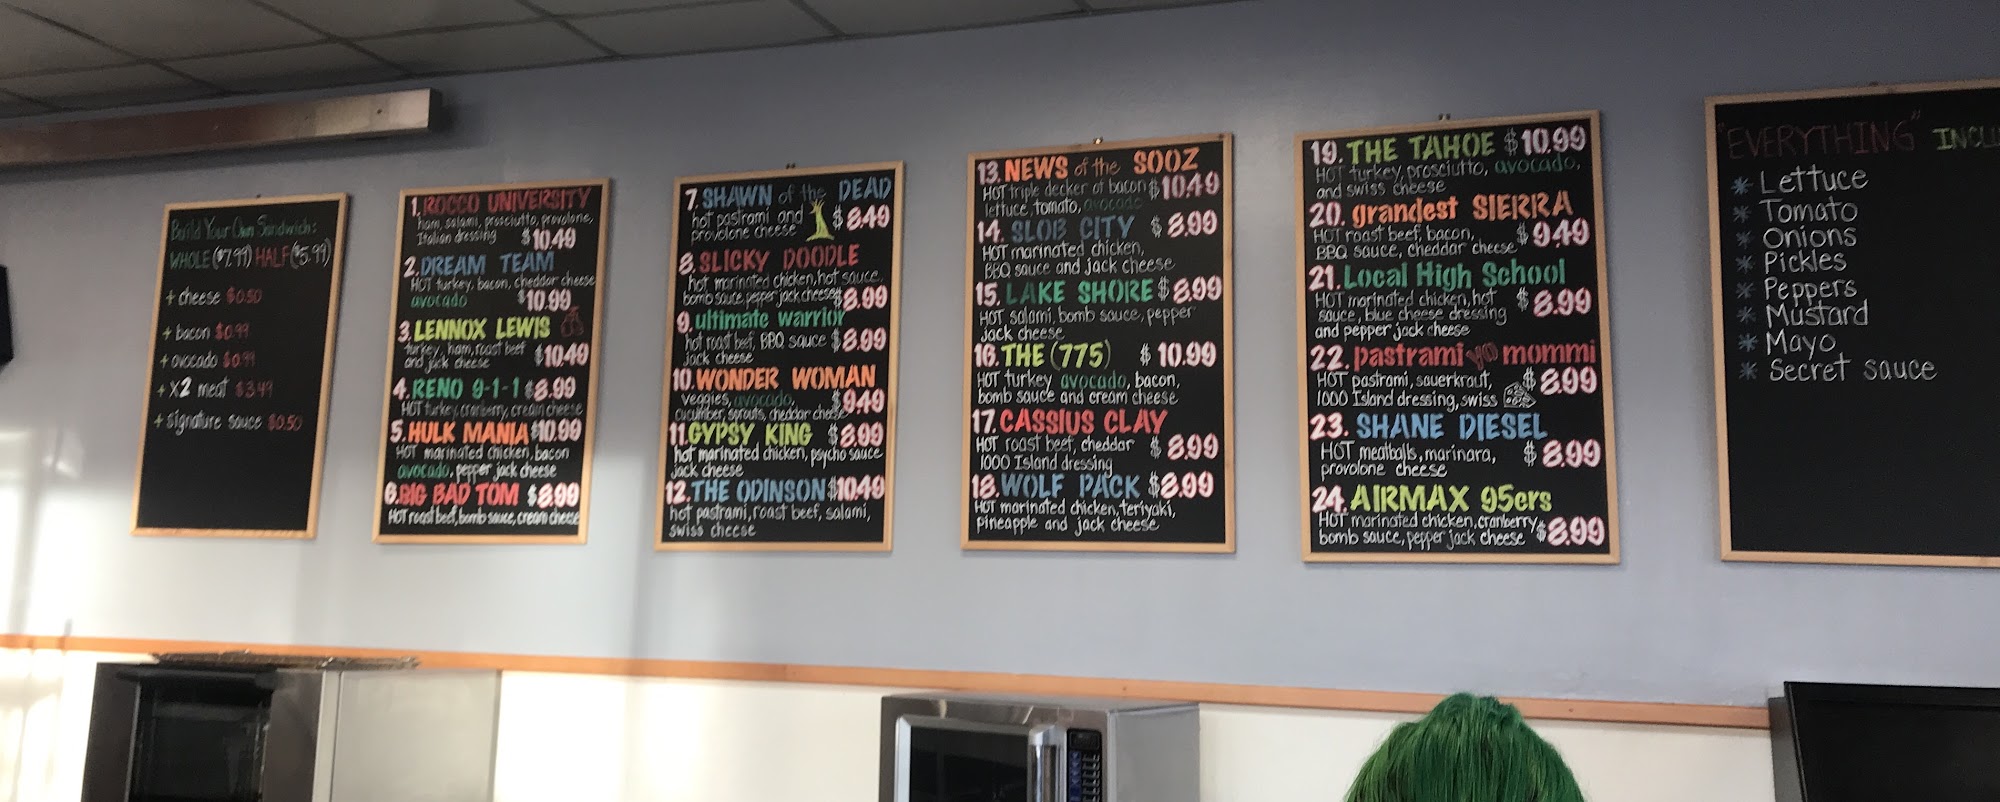 Build Your Own Sandwich:
WHOLE ($7.99) HALF ($5.99)
+ cheese $0.50
+ bacon $0.99
+ avocado $0.99
+ X2 meat $3.49
+ signature sauce $0.50
1. ROCCO UNIVERSITY
ham, salami, prosciutto, provolone,
Italian dressing $10.49
2. DREAM TEAM
HOT turkey, bacon, cheddar cheese
avocado $10.99
3. LENNOX LEWIS
turkey, ham, roast beef
and jack cheese $10.49
4. RENO 9-1-1 $8.99
HOT turkey, cranberry, cream cheese
5. HULK MANIA $10.99
HOT marinated chicken, bacon
avocado, pepper jack cheese
6. BIG BAD TOM $8.99
HOT roast beef, bomb sauce, cream cheese
7. SHAWN of the DEAD
hot pastrami and
provolone cheese $8.49
8. SLICKY DOODLE
hot marinated chicken, hot sauce,
bomb sauce, pepper jack cheese $8.99
9. ultimate warrior
hot roast beef, BBQ sauce $8.99
jack cheese
10. WONDER WOMAN
veggies, avocado, $9.49
cucumber, sprouts, cheddar cheese
11. GYPSY KING $8.99
hot marinated chicken, psycho sauce
jack cheese
12. THE ODINSON $10.49
hot pastrami, roast beef, salami,
swiss cheese
13. NEWS of the SOOZ
HOT triple decker of bacon $10.49
lettuce, tomato, avocado
14. SLOB CITY $8.99
HOT marinated chicken,
BBQ sauce and jack cheese
15. LAKE SHORE $8.99
HOT salami, bomb sauce, pepper
jack cheese
16. THE (775) $10.99
HOT turkey avocado, bacon,
bomb sauce and cream cheese
17. CASSIUS CLAY
HOT roast beef, cheddar $8.99
1000 Island dressing
18. WOLF PACK $8.99
HOT marinated chicken, teriyaki,
pineapple and jack cheese
19. THE TAHOE $10.99
HOT turkey, prosciutto, avocado,
and swiss cheese
20. grandest SIERRA
HOT roast beef, bacon, $9.49
BBQ sauce, cheddar cheese
21. Local High School
HOT marinated chicken, hot $8.99
sauce, blue cheese dressing
and pepper jack cheese
22. pastrami YO mommi
HOT pastrami, sauerkraut, $8.99
1000 Island dressing, swiss
23. SHANE DIESEL
HOT meatballs, marinara, $8.99
provolone cheese
24. AIRMAX 95ers
HOT marinated chicken, cranberry, $8.99
bomb sauce, pepper jack cheese
"EVERYTHING" INCLU
* Lettuce
* Tomato
* Onions
* Pickles
* Peppers
* Mustard
* Mayo
* Secret sauce